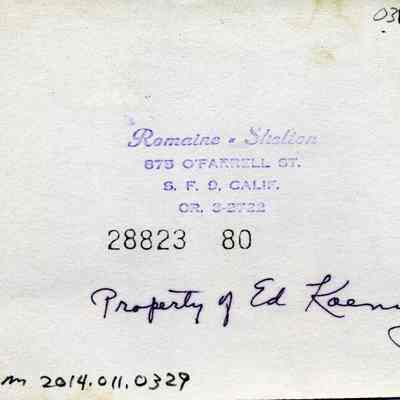 Romaine & Skelton
875 O'FARRELL ST.
S. F. 9, CALIF.
OR. 3-2722
28823 80
Property of Ed
2014.011.0329